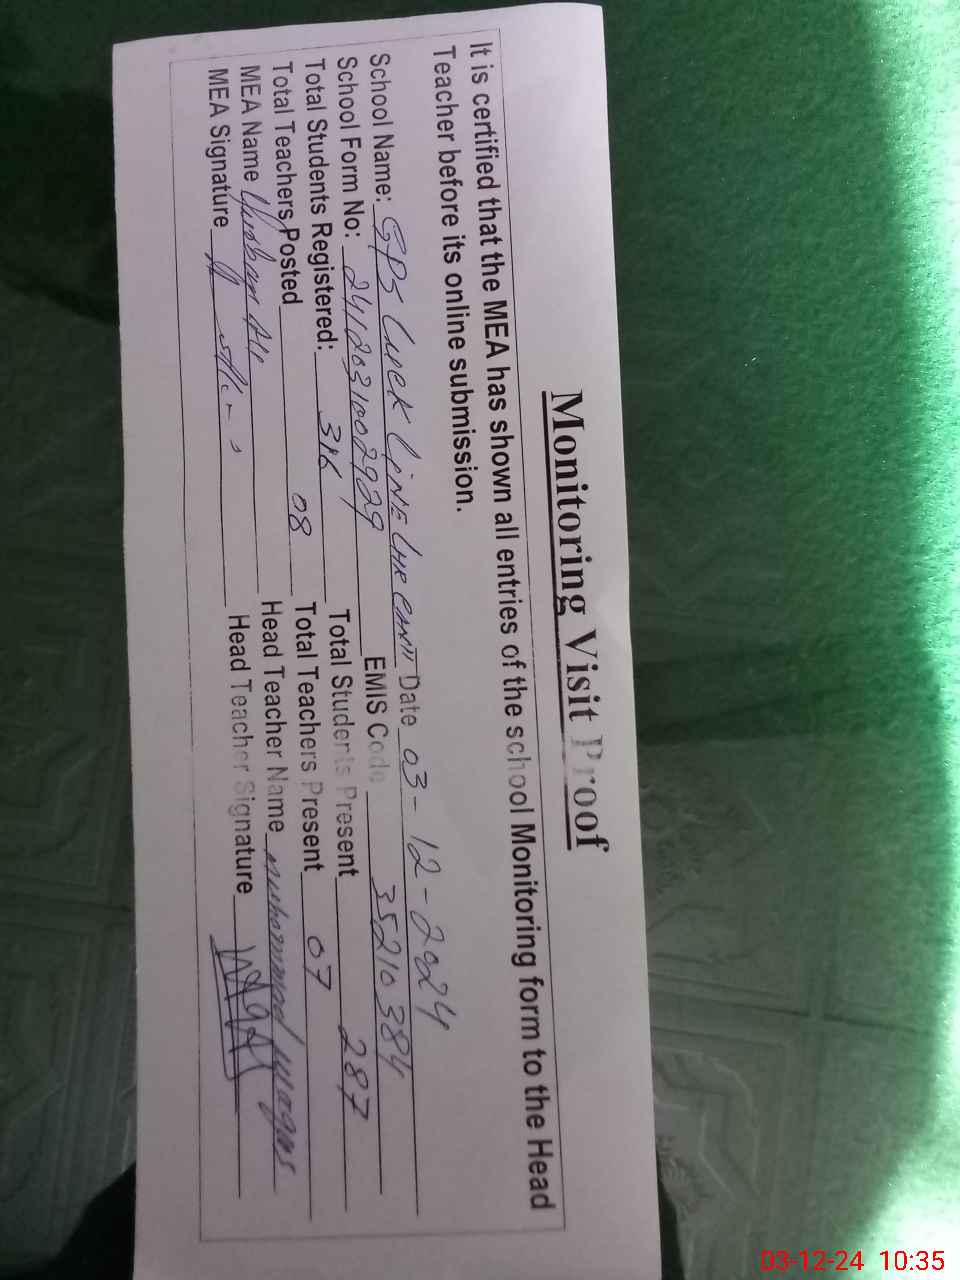 Monitoring Visit Proof
It is certified that the MEA has shown all entries of the school Monitoring form to the Head
Teacher before its online submission.
School Name: GPS Date 03-12-2024
School Form No: 2412031002929 EMIS Code 35210384
Total Students Registered: 316 Total Students Present 287
Total Teachers Posted 08 Total Teachers Present 07
MEA Name Ali Head Teacher Name Muhammad
MEA Signature Head Teacher Signature
03-12-24 10:35